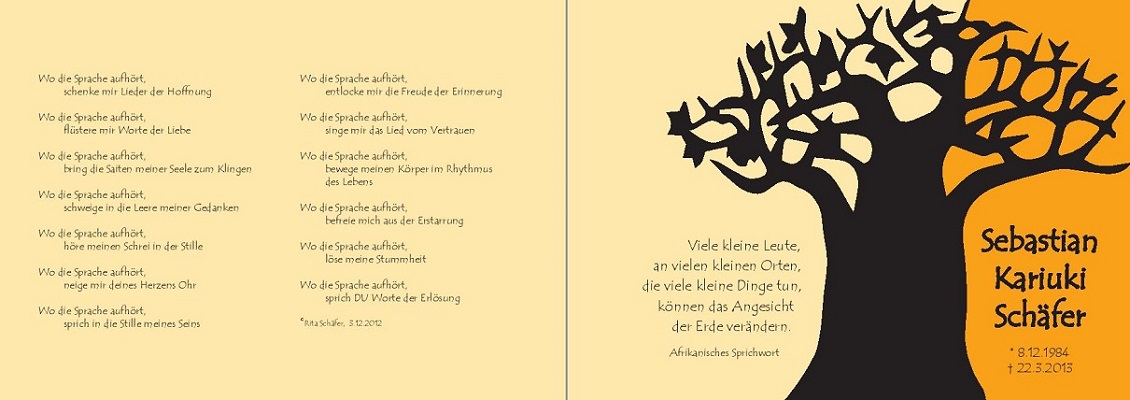 Wo die Sprache aufhört,
schenke mir Lieder der Hoffnung
Wo die Sprache aufhört,
flüstere mir Worte der Liebe
Wo die Sprache aufhört,
bring die Saiten meiner Seele zum Klingen
Wo die Sprache aufhört,
schweige in die Leere meiner Gedanken
Wo die Sprache aufhört,
höre meinen Schrei in der Stille
Wo die Sprache aufhört,
neige mir deines Herzens Ohr
Wo die Sprache aufhört,
sprich in die Stille meines Seins
Wo die Sprache aufhört,
entlocke mir die Freude der Erinnerung
Wo die Sprache aufhört,
singe mir das Lied vom Vertrauen
Wo die Sprache aufhört,
bewege meinen Körper im Rhythmus
des Lebens
Wo die Sprache aufhört,
befreie mich aus der Erstarrung
Wo die Sprache aufhört,
löse meine Stummheit
Wo die Sprache aufhört,
sprich DU Worte der Erlösung
©Rita Schäfer, 3.12.2012
Viele kleine Leute,
an vielen kleinen Orten,
die viele kleine Dinge tun,
können das Angesicht
der Erde verändern.
Afrikanisches Sprichwort
Sebastian
Kariuki
Schäfer
* 8.12.1984
† 22.3.2013